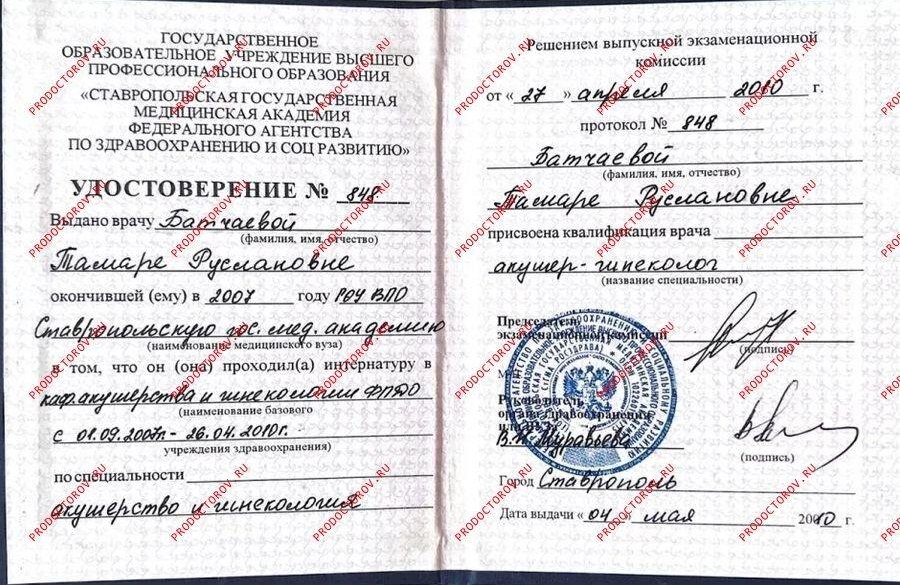 ГОСУДАРСТВЕННОЕ
ОБРАЗОВАТЕЛЬНОЕ УЧРЕЖДЕНИЕ ВЫСШЕГО
ПРОФЕССИОНАЛЬНОГО ОБРАЗОВАНИЯ
«СТАВРОПОЛЬСКАЯ ГОСУДАРСТВЕННАЯ
МЕДИЦИНСКАЯ АКАДЕМИЯ
ФЕДЕРАЛЬНОГО АГЕНТСТВА
ПО ЗДРАВООХРАНЕНИЮ И СОЦ РАЗВИТИЮ»
УДОСТОВЕРЕНИЕ № 848
Выдано врачу Батчаевой
(фамилия, имя, отчество)
Тамаре Руслановне
окончившей (ему) в 2007 году ГОУ ВПО
Ставропольскую гос. мед. академию
(наименование медицинского вуза)
в том, что он (она) проходил(а) интернатуру в
каф. акушерства и гинекологии ФПДО
(наименование базового
с 01.09.2007г. - 26.04.2010г.
учреждения здравоохранения)
по специальности
акушерство и гинекология
Решением выпускной экзаменационной
комиссии
от «27» апреля 2010 г.
протокол № 848
Батчаевой
(фамилия, имя, отчество)
Тамаре Руслановне
присвоена квалификация врача
акушер-гинеколог
(название специальности)
Председатель
экзаменационной комиссии
(подпись)
Руководитель
органа здравоохранения
или ВУЗа
В.Н. Муравьева
(подпись)
Город Ставрополь
Дата выдачи «04» мая 2010 г.
PRODOCTOROV.RU